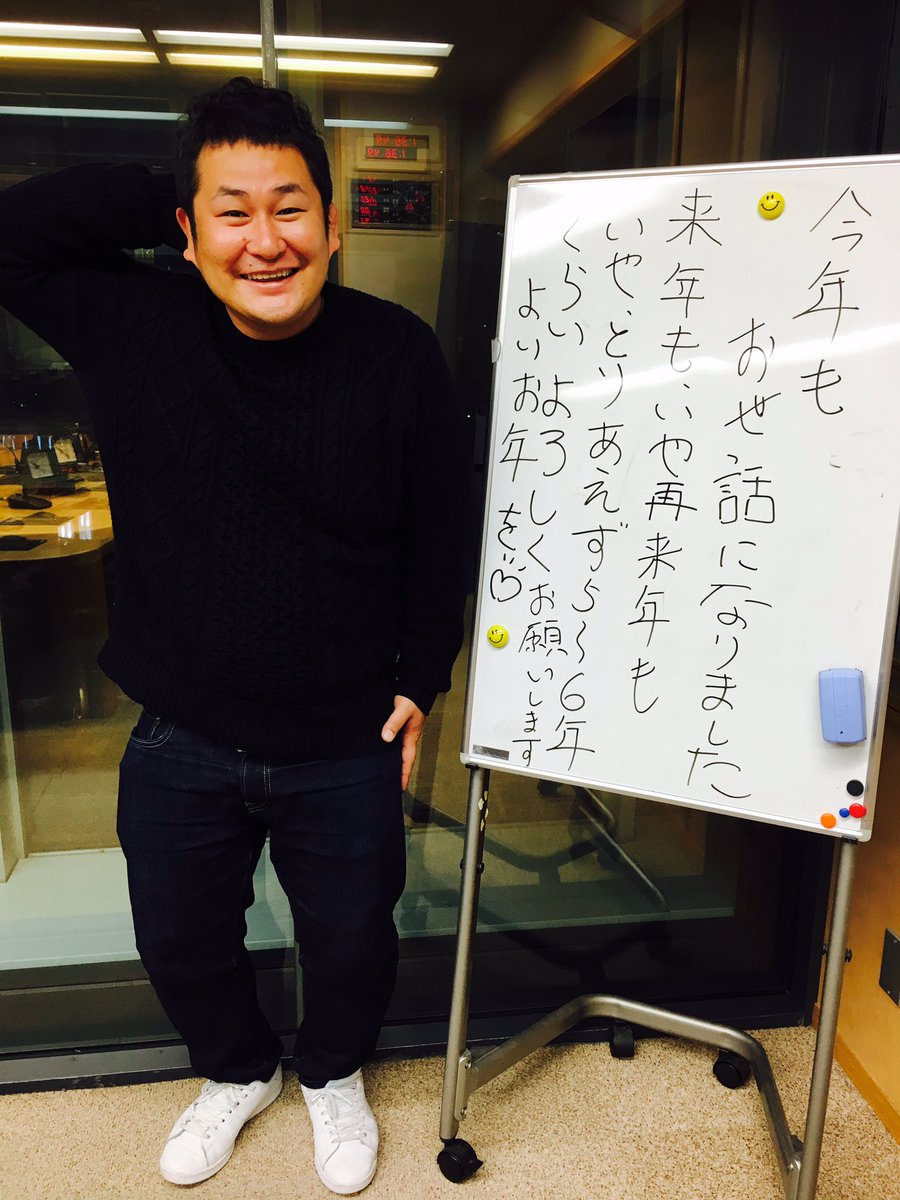 今年も
おせっ話になりました
来年も、いや再来年も
いや、とりあえず5〜6年
くらい よろしくお願いします
よいお年を…♡